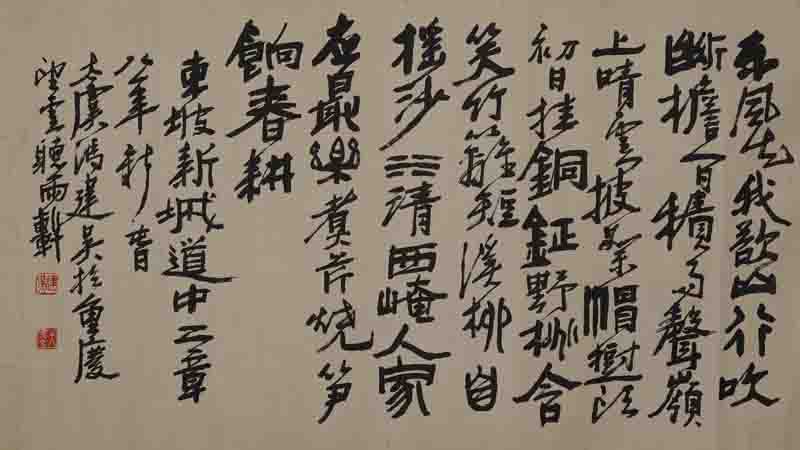 東風知我欲山行吹
斷檐間積雨聲嶺
上晴雲披絮帽樹頭
初日挂銅鉦野桃含
笑竹籬短溪柳自
摇沙水清西崦人家
应最樂煮芹燒笋
餉春耕
東坡新城道中二章
八年新
大虞馮建吴於重慶
望雲聽雨軒